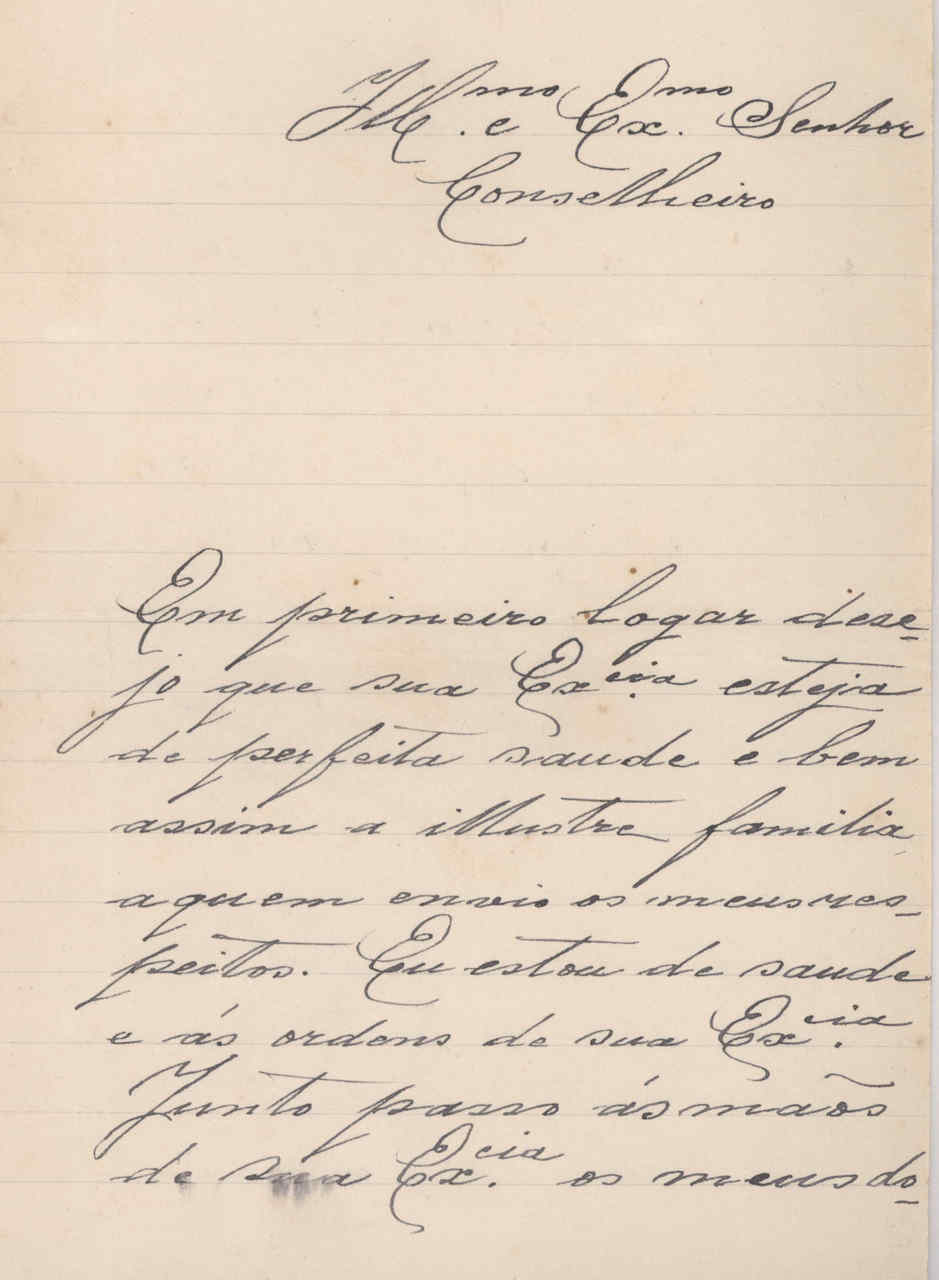 Ill.mo e Ex.mo Senhor
Conselheiro
Em primeiro logar dese-
jo que sua Ex.cia esteja
de perfeita saude e bem
assim a illustre familia,
a quem envio os meus res-
peitos. Eu estou de saude
e ás ordens de sua Ex.cia
Junto passo ás mãos
de sua Ex.cia os meus do-